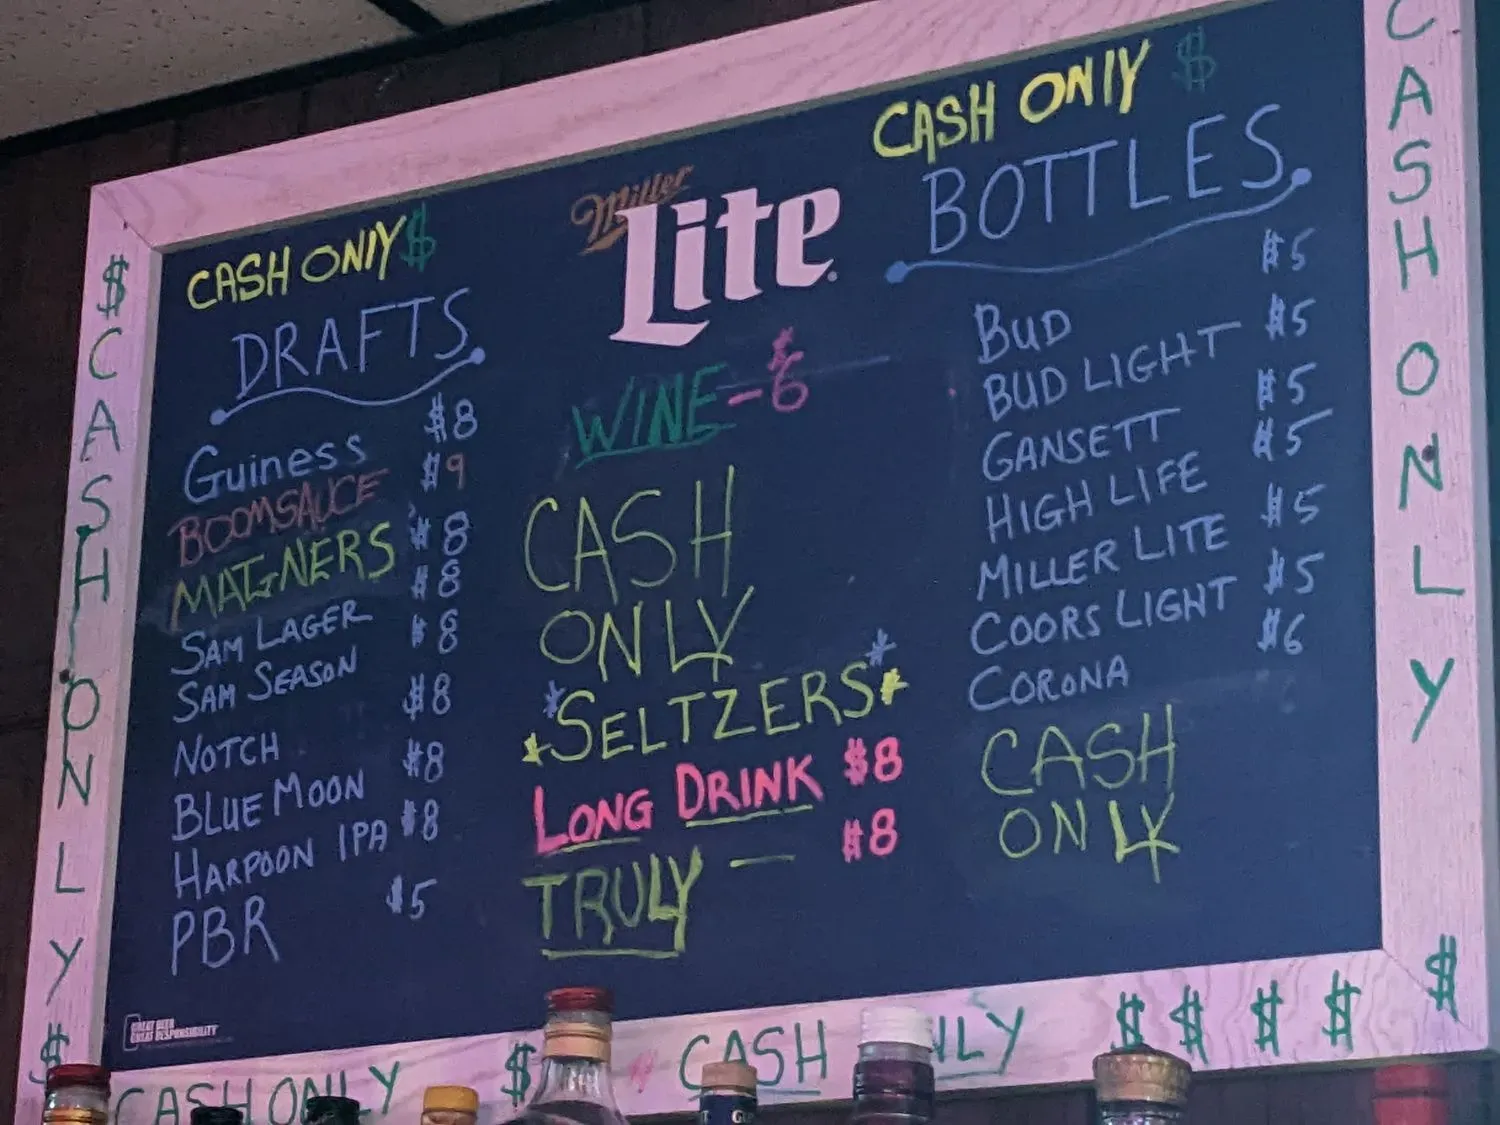 CASH ONLY $
DRAFTS
Guiness $8
BOOMSAUCE $9
MAGNERS $8
SAM LAGER $8
SAM SEASON $8
NOTCH $8
BLUE MOON $8
HARPOON IPA $8
PBR $5
GREAT BEER
GREAT RESPONSIBILITY
Miller
Lite
WINE - $6
CASH
ONLY
*SELTZERS*
LONG DRINK $8
TRULY — $8
CASH ONLY $
BOTTLES
BUD $5
BUD LIGHT $5
GANSETT $5
HIGH LIFE $5
MILLER LITE $5
COORS LIGHT $5
CORONA $6
CASH
ONLY
$ CASH ONLY $
CASH ONLY
CASH ONLY $ CASH ONLY $ $ $ $ $